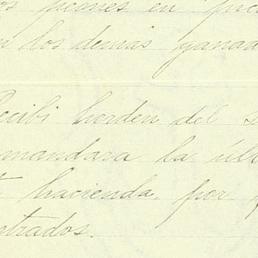 os peones en
n los demás ganad
Recibi herden del
mandara la últ
hacienda, por
ntrados.